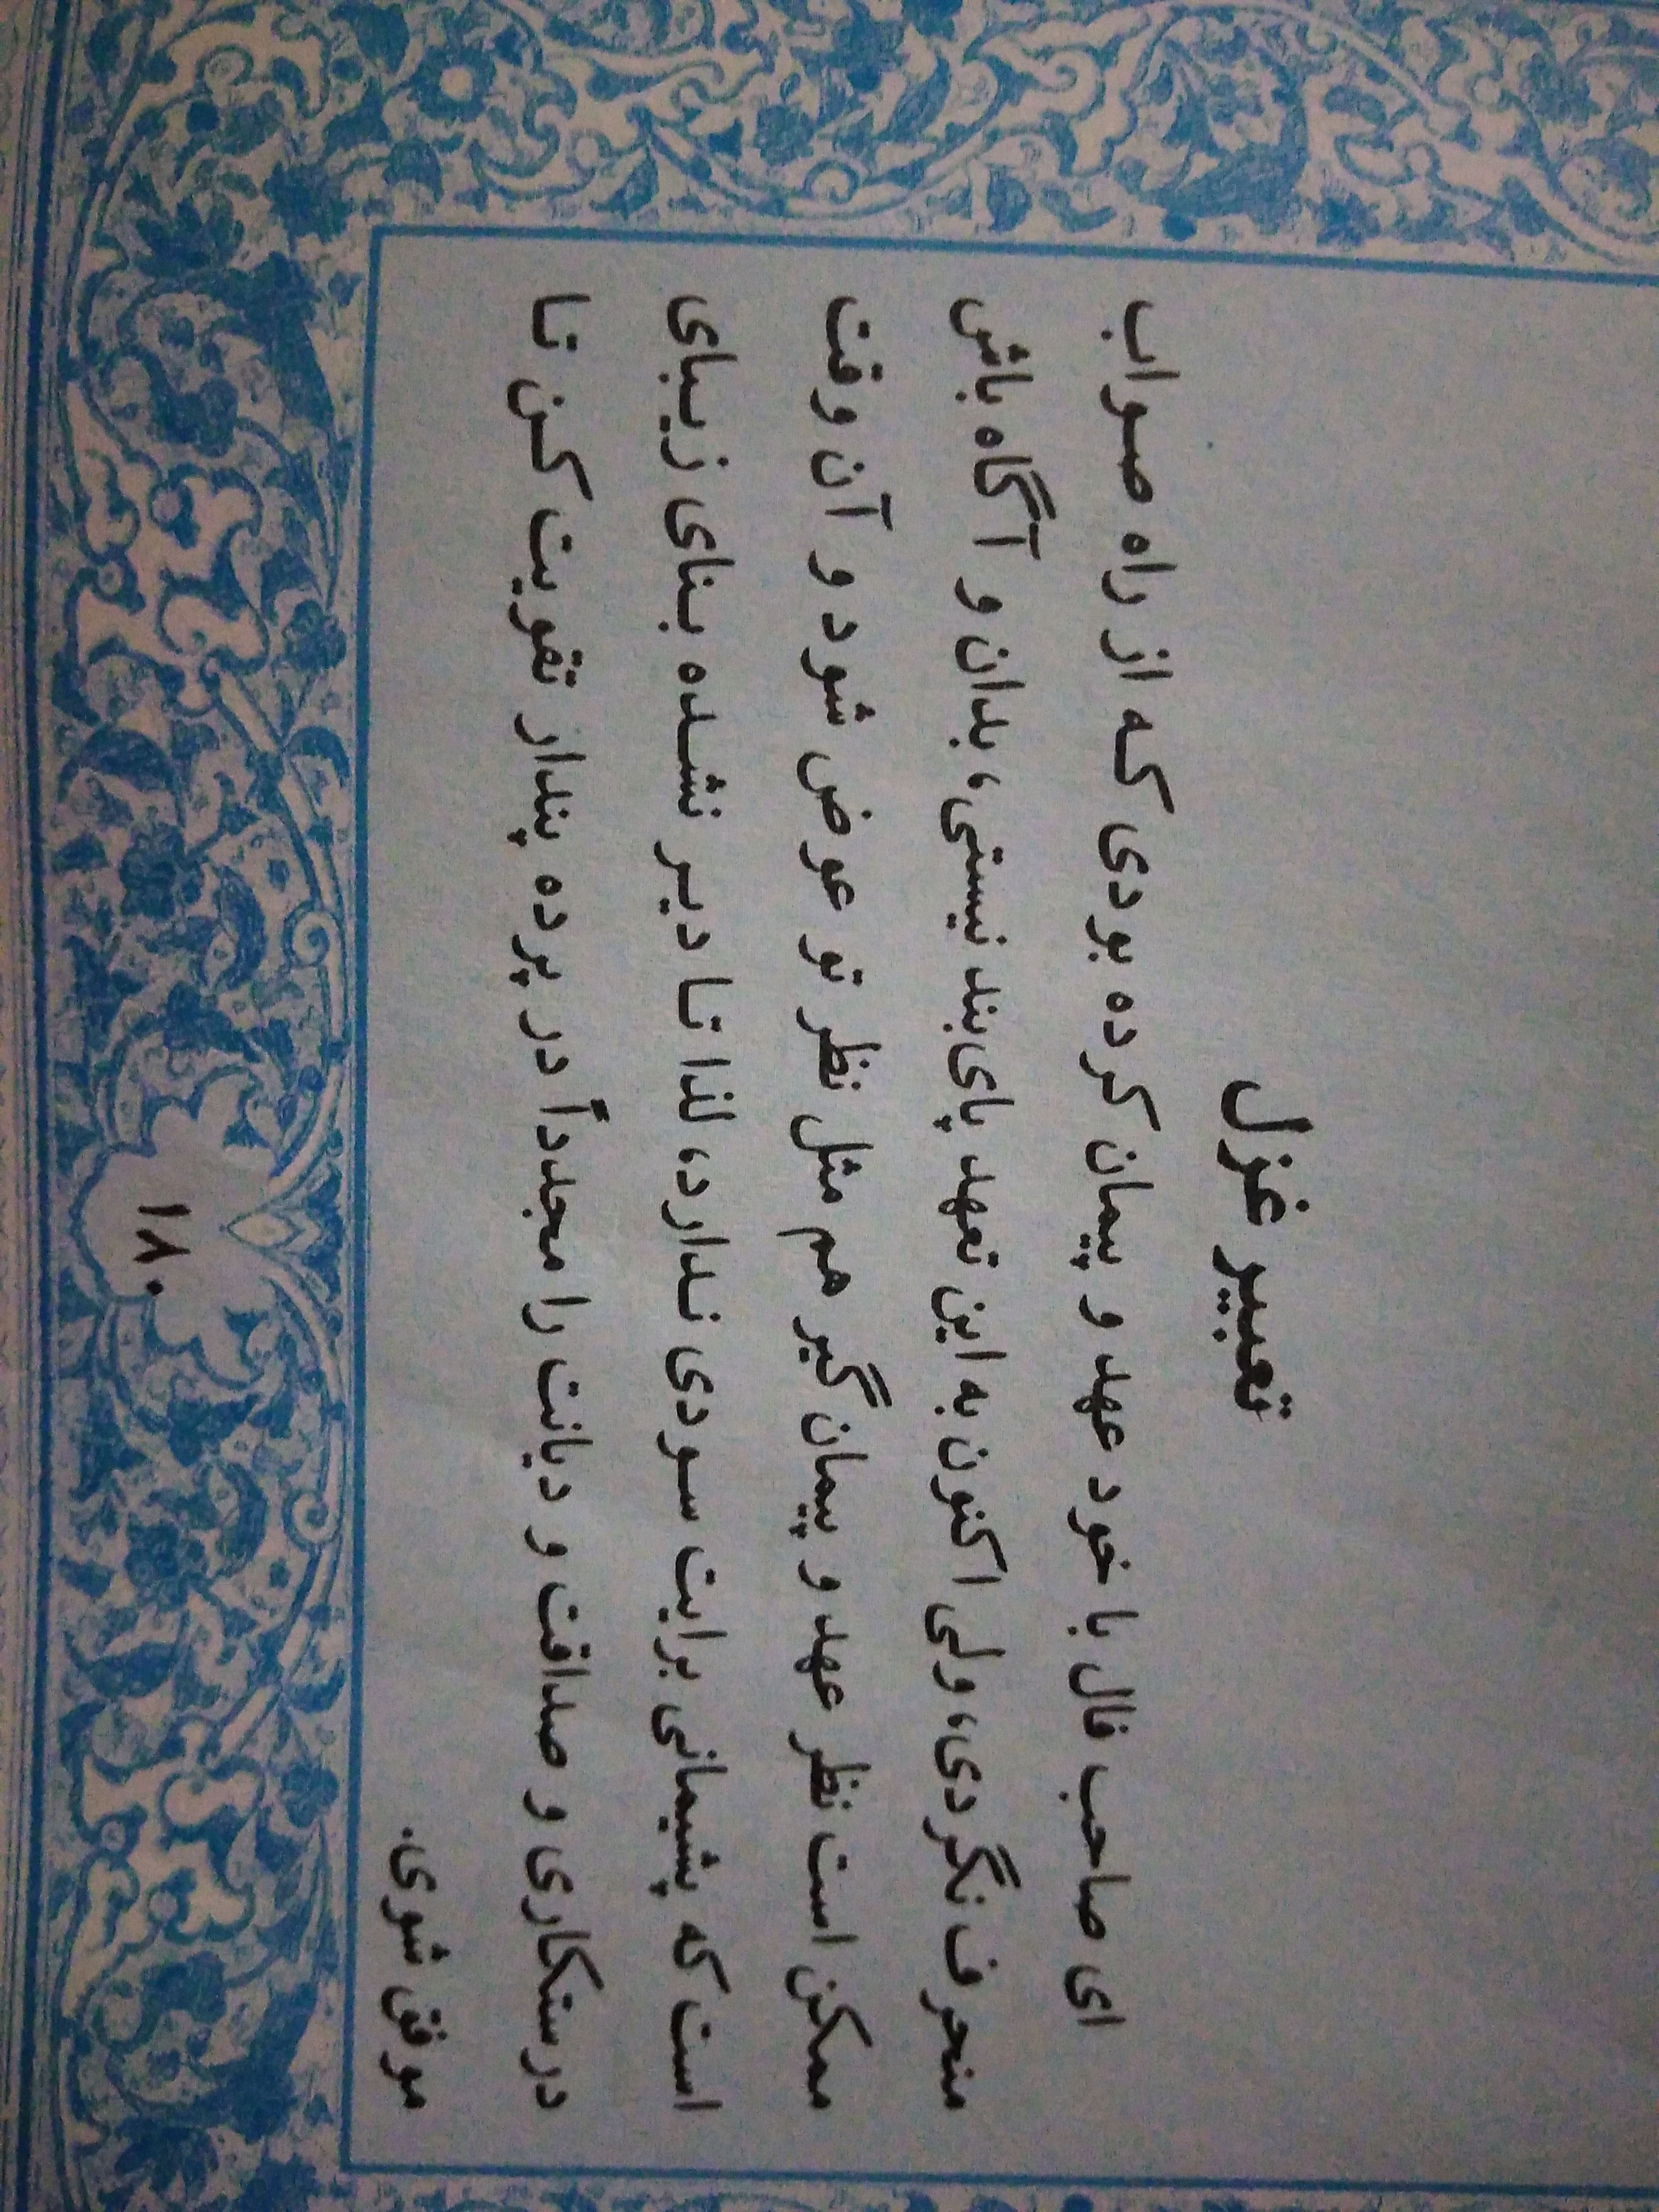 تعبیر غزل
ای صاحب فال با خود عهد و پیمان کرده بودی که از راه صواب
منحرف نگردی، ولی اکنون به این تعهد پای‌بند نیستی، بدان و آگاه باش
ممکن است نظر عهد و پیمان گیر هم مثل نظر تو عوض شود و آن وقت
است که پشیمانی برایت سودی ندارد، لذا تا دیر نشده بنای زیبای
درستکاری و صداقت و دیانت را مجدداً در پرده پندار تقویت کن تا
موفق شوی.
۱۸۰